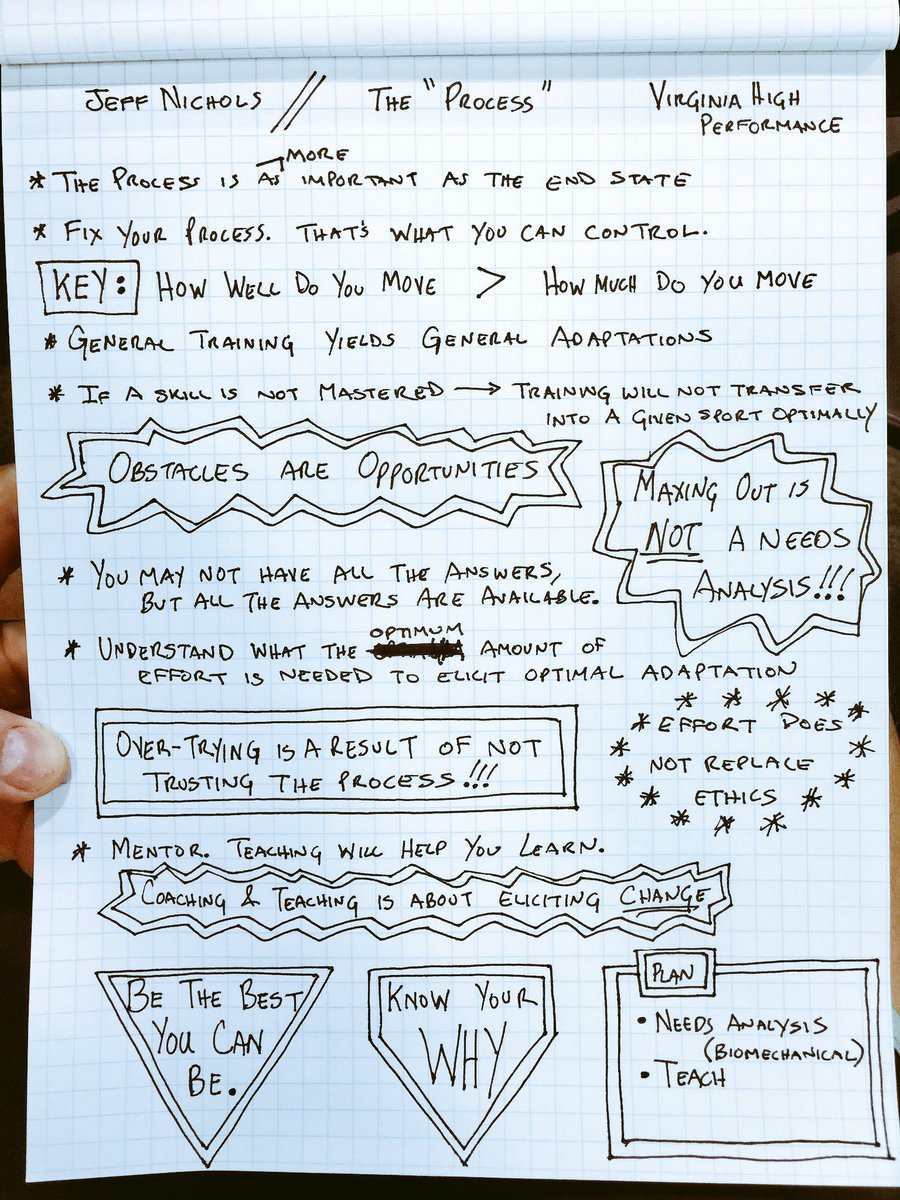 Jeff Nichols // The "Process" Virginia High
Performance
MORE
* The Process is as important as the end state
* Fix your Process. That's what you can control.
KEY: How Well Do You Move > How Much Do You Move
* General Training Yields General Adaptations
* If a skill is not Mastered → Training will not transfer
into a given sport optimally
Obstacles are Opportunities
Maxing Out is
NOT a Needs
Analysis!!!
* You may not have all the answers,
but all the answers are available.
optimum
* Understand what the amount of
effort is needed to elicit optimal adaptation
Over-trying is a result of not
trusting the process!!!
* Effort does
not replace
ethics
* Mentor. Teaching will help you learn.
Coaching & Teaching is about eliciting change
Be The Best
You Can
Be.
Know Your
WHY
Plan
• Needs Analysis
(Biomechanical)
• Teach